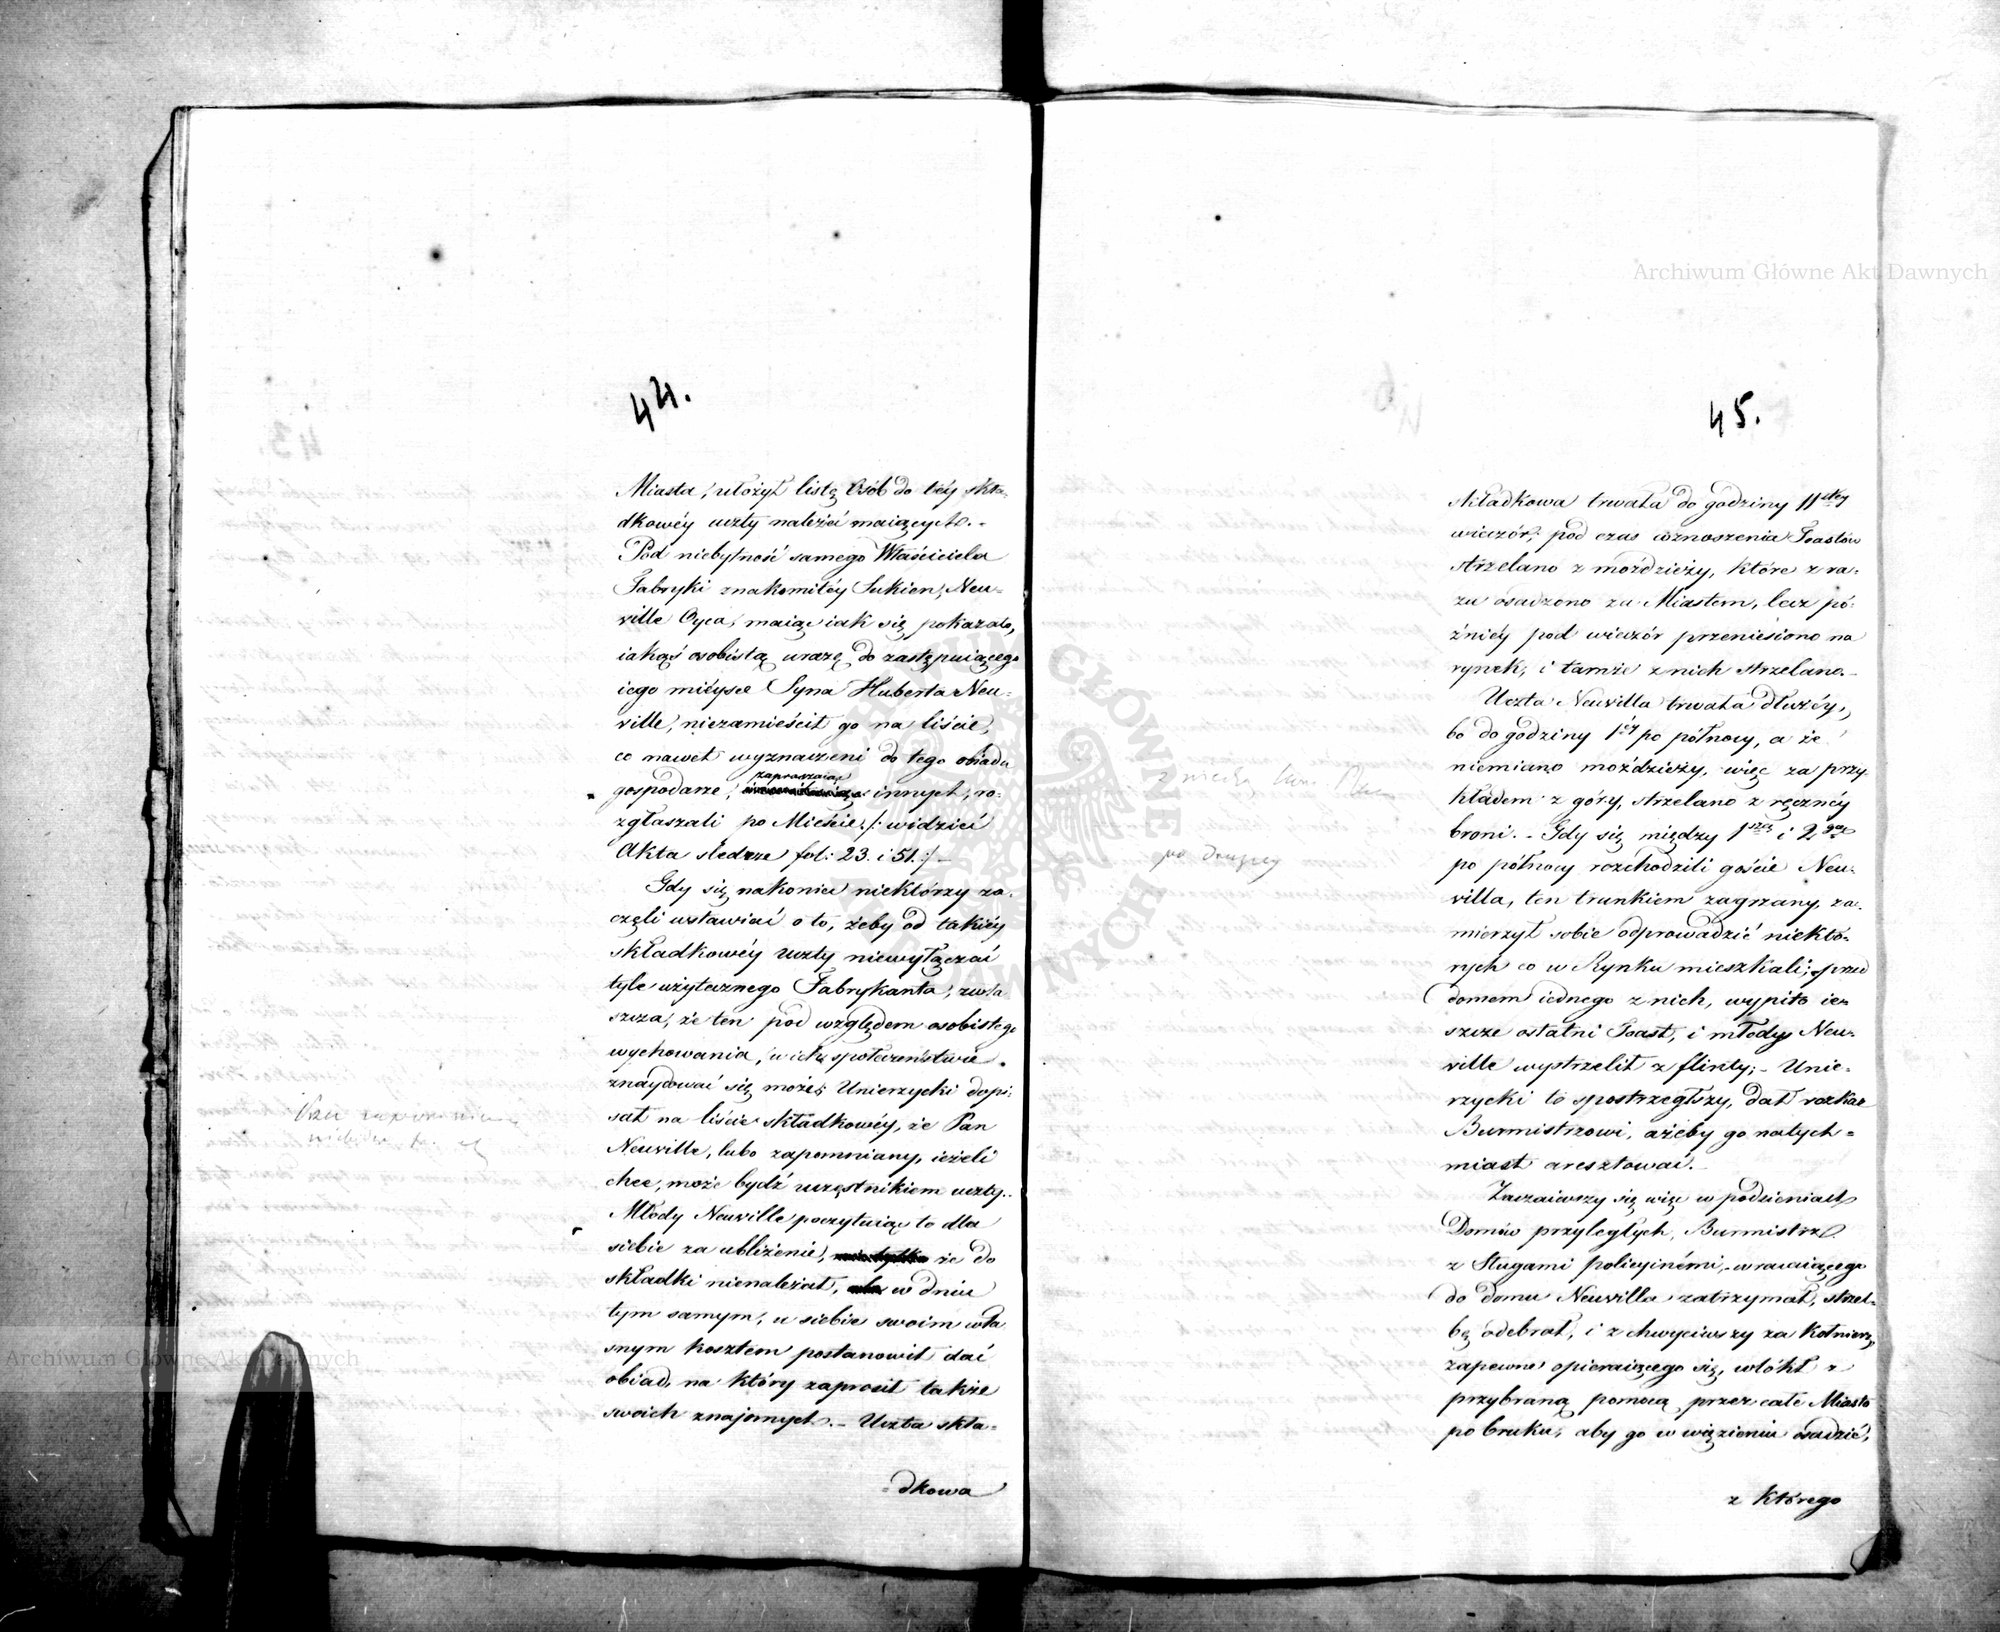 44.
Miasta, ułożył listę Osób do téy skła-
dkowéy uczty należéć maiących. -
Pod niebytność samego Właściciela
Fabryki znakomitéy Sukien, Neu-
ville Oyca, maiąc iak się pokazało,
iakąś osobistą urazę do zastępuiącego
iego miéysce Syna Huberta Neu-
ville, niezamieścił go na liście,
co nawet wyznaczeni do tego obiadu
gospodarze, zapraszaiąc innych, ro-
zgłaszali po Mieście /: widzieć
Akta śledcze fol: 23. i 51. :/ -
Gdy się nakoniec niektórzy za-
częli wstawiać o to, żeby od takiéy
składkowéy uczty niewyłączać
tyle użytecznego Fabrykanta, zwła
szcza, że ten pod względem osobistego
wychowania, w ich społeczeństwie
znaydować się może; Unierzycki dopi-
sał na liście składkowéy, że Pan
Neuville, lubo zapomniany, ieżeli
chce, może bydź uczęstnikiem uczty. -
Młody Neuville poczytuiąc to dla
siebie za ubliżenie, że do
składki nienależał, w dniu
tym samym, u siebie swoim wła
snym kosztem postanowił dać
obiad, na który zaprosił także
swoich znajomych. - Uczta skła-
- dkowa
Archiwum Główne Akt Dawnych
45.
składkowa trwała do godziny 11stéy
wieczór, pod czas wznoszenia Toastów
strzelano z moździeży, które z ra-
zu osadzono za Miastem, lecz pó-
źniéy pod wieczór przeniesiono na
rynek, i tamże z nich strzelano. -
Uczta Neuvilla trwała dłużéy,
bo do godziny 1éy po północy, a że
niemiano moździeży, więc za przy-
kładem z góry, strzelano z ręcznéy
broni. - Gdy się między 1szą i 2gą
po północy rozchodzili goście Neu-
villa, ten trunkiem zagrzany, za-
mierzył sobie odprowadzić niektó-
rych co w Rynku mieszkali; przed
domem iednego z nich, wypito ie-
szcze ostatni Toast, i młody Neu-
ville wystrzelił z flinty; - Unie-
rzycki to spostrzegłszy, dał rozkaz
Burmistrzowi, ażeby go natych-
miast aresztować. -
Zaczaiwszy się więc w podsieniach
Domów przyległych, Burmistrz
z Sługami policyinémi, wracaiącego
do domu Neuvilla zatrzymał, strzel-
bę odebrał, i z chwyciwszy za kołnierz,
zapewne opieraiącego się, wlókł z
przybraną pomocą przez całe Miasto
po bruku, aby go w więzieniu osadzić,
z którego
po drugiey
Archiwum Główne Akt Dawnych